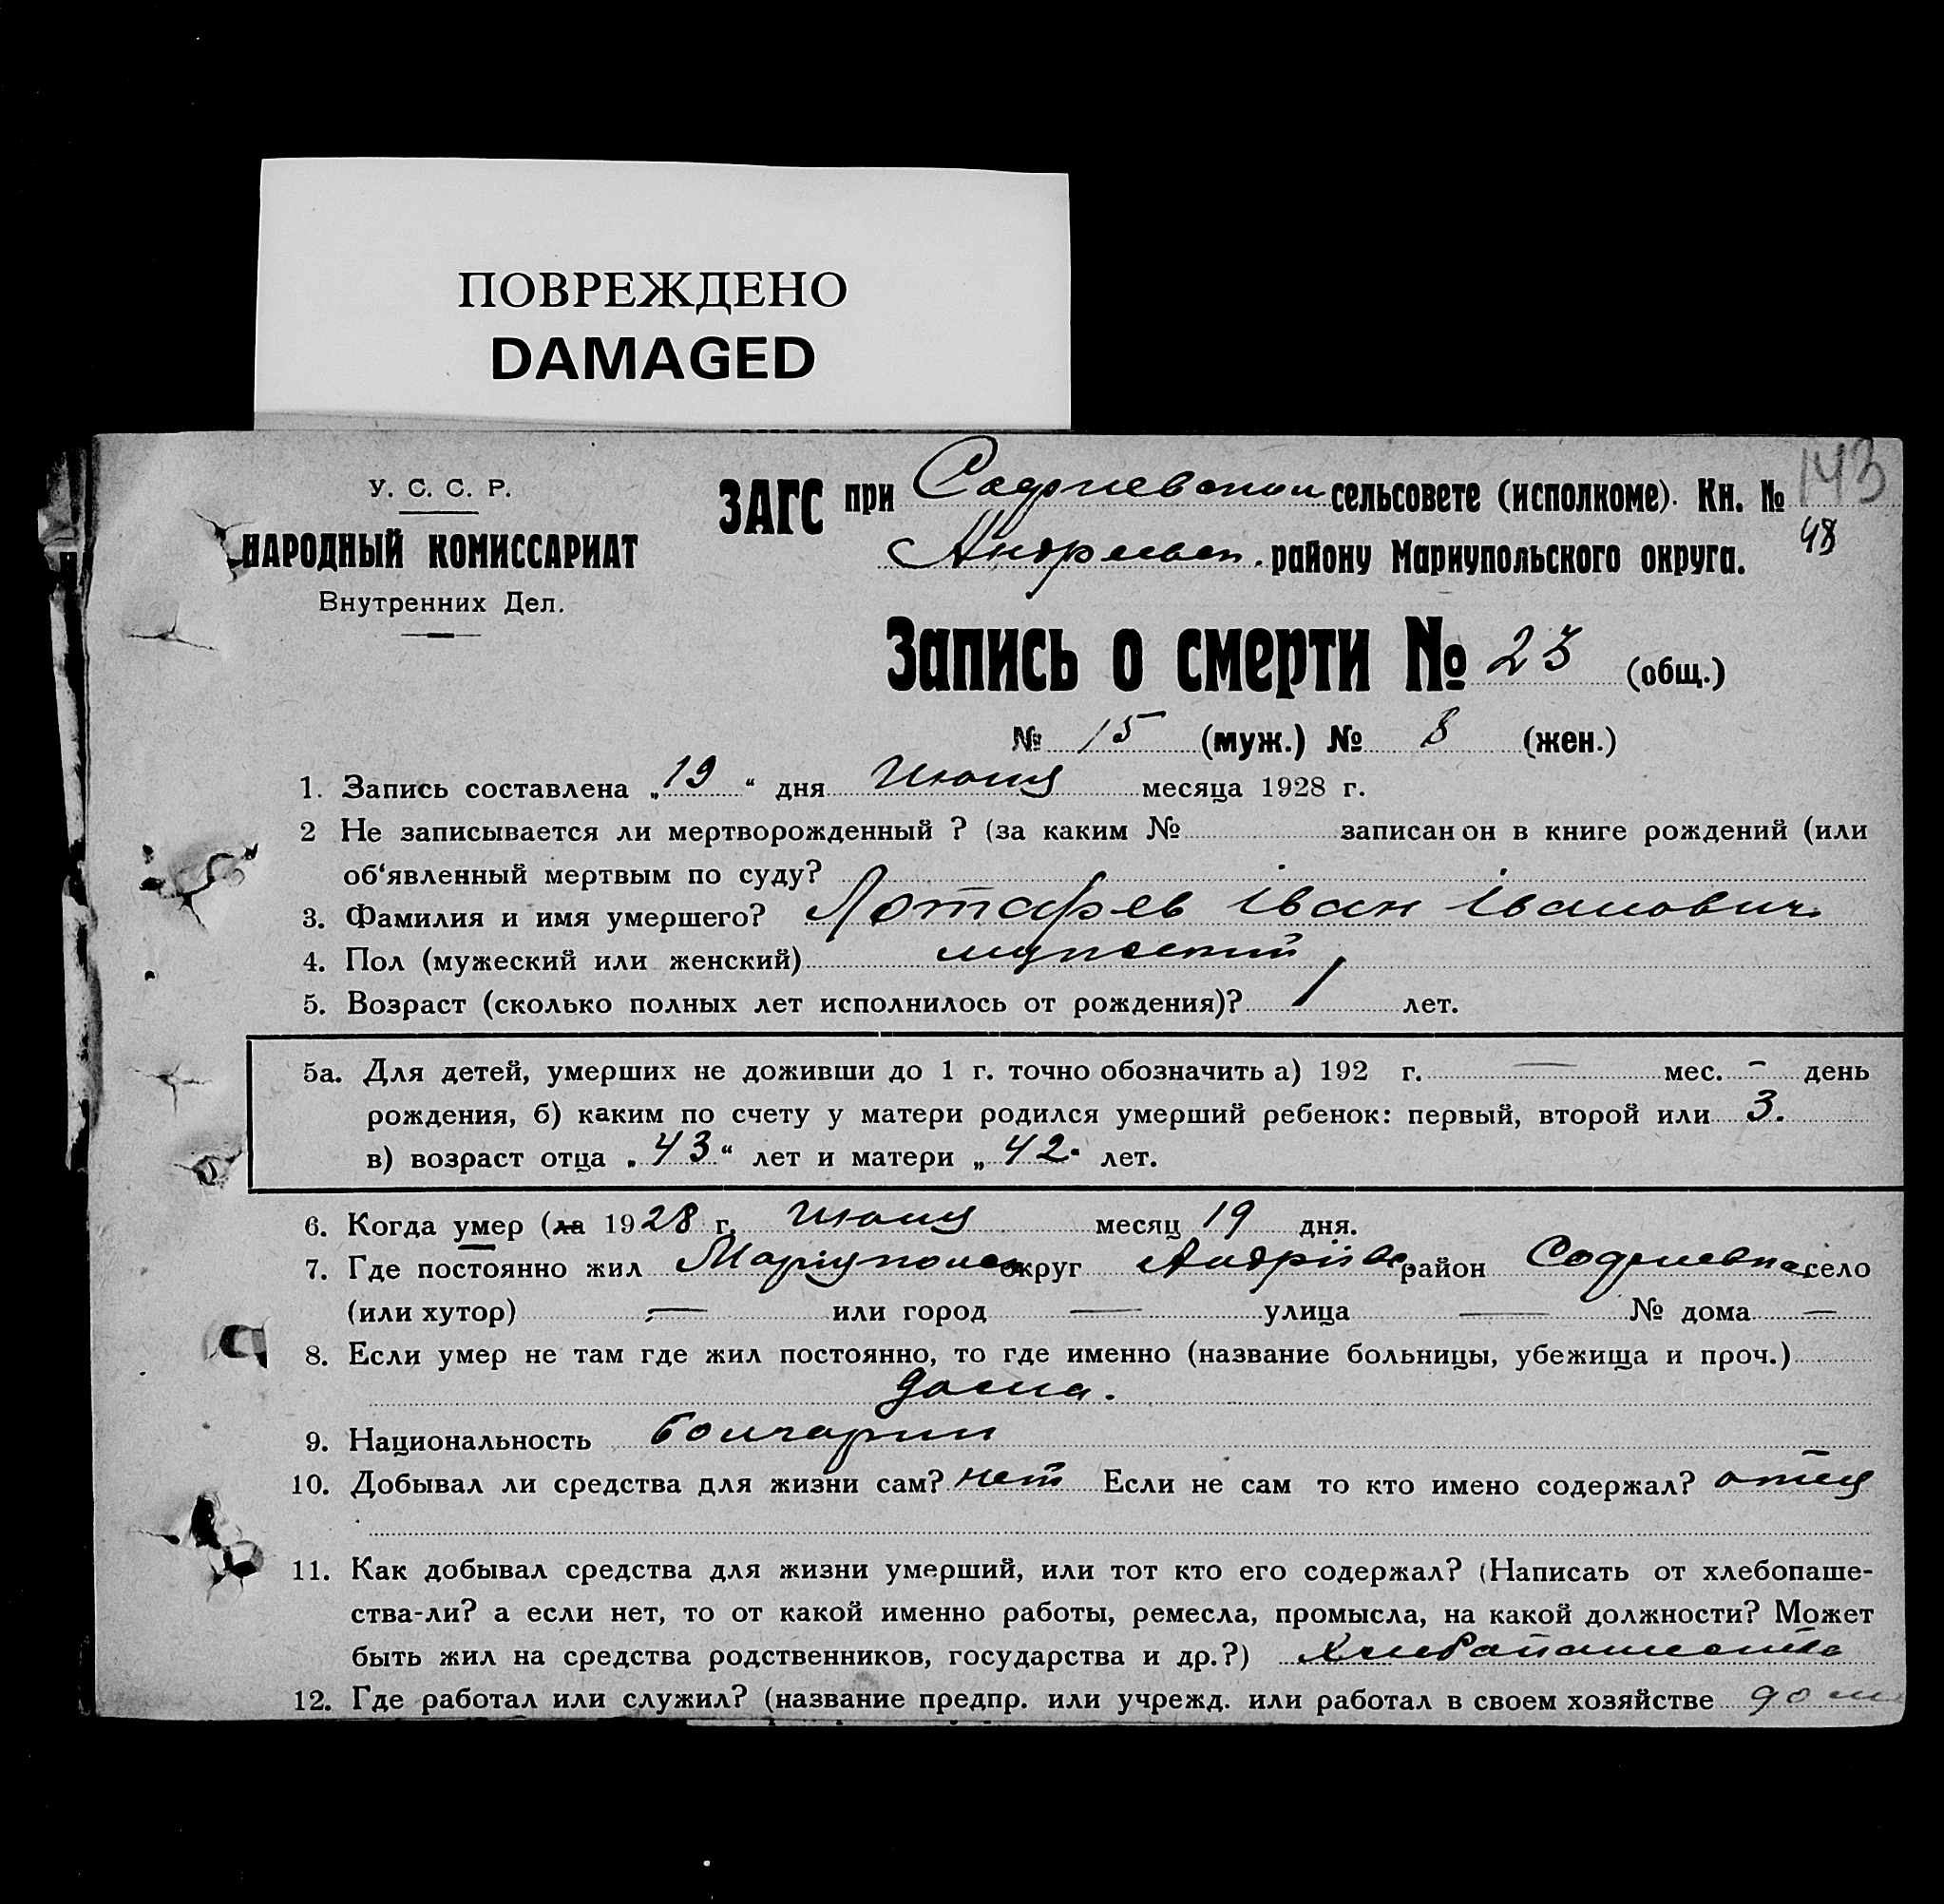 ПОВРЕЖДЕНО
DAMAGED
143
У. С. С. Р.
НАРОДНЫЙ КОМИССАРИАТ
Внутренних Дел.
ЗАГС при сельсовете (исполкоме). Кн. №
48
Андреевск. району Мариупольского округа.
Запись о смерти № 23 (общ.)
№ 15 (муж.) № 8 (жен.)
1. Запись составлена „ 19 “ дня месяца 1928 г.
2 Не записывается ли мертворожденный ? (за каким № записан он в книге рождений (или
об‘явленный мертвым по суду?
3. Фамилия и имя умершего? Лотарев Іван Іванович
4. Пол (мужеский или женский) мужеский
5. Возраст (сколько полных лет исполнилось от рождения)? 1 лет.
5а. Для детей, умерших не доживши до 1 г. точно обозначить а) 192 г. — мес. - день
рождения, б) каким по счету у матери родился умерший ребенок: первый, второй или 3.
в) возраст отца „ 43 “ лет и матери „ 42 “ лет.
6. Когда умер (ла 1928 г. месяц 19 дня.
7. Где постоянно жил округ район село
(или хутор) — или город — улица — № дома —
8. Если умер не там где жил постоянно, то где именно (название больницы, убежища и проч.)
дома.
9. Национальность болгарин
10. Добывал ли средства для жизни сам? нет Если не сам то кто имено содержал? отец
11. Как добывал средства для жизни умерший, или тот кто его содержал? (Написать от хлебопаше-
ства-ли? а если нет, то от какой именно работы, ремесла, промысла, на какой должности? Может
быть жил на средства родственников, государства и др.?)
12. Где работал или служил? (название предпр. или учрежд. или работал в своем хозяйстве